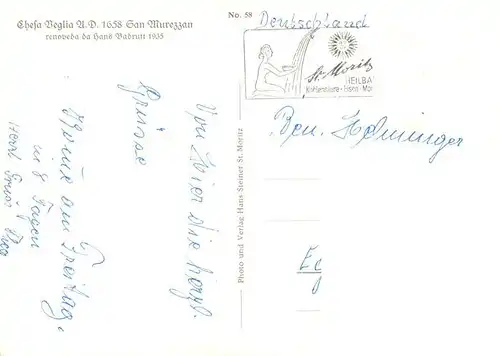 Chesa Veglia A.D. 1658 San Murezzan
renoveda da Hans Badrutt 1935
No. 58
Deutschland
St. Moritz
HEILBA
Kohlensäure - Eisen - Mo
Photo und Verlag Hans Steiner St. Moritz
Von hier die herzl.
Grüsse
Komme am Freitag,
in 8 Tagen
Herzl.